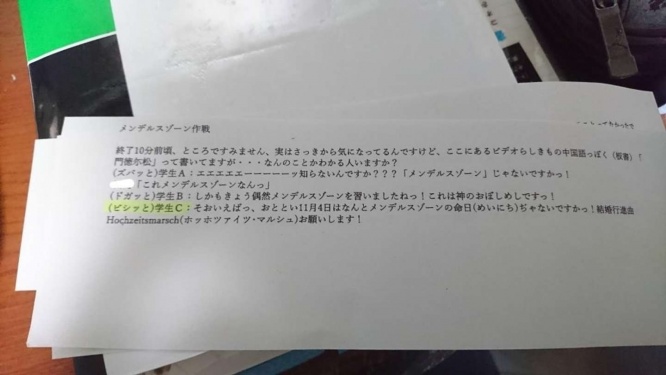 メンデルスゾーン作戦
終了10分前頃、ところですみません、実はさっきから気になってるんですけど、ここにあるビデオらしきもの中国語っぽく（板書）「
門徳尓松」って書いてますが・・・なんのことかわかる人いますか？
(ズバッと)学生A：エエエエエーーーーーッ知らないんですか？？？「メンデルスゾーン」じゃないですかっ！
「これメンデルスゾーンなんっ」
(ドガッと)学生B：しかもきょう偶然メンデルスゾーンを習いましたねっ！これは神のおぼしめしですっ！
(ビシッと)学生C：そおいえばっ、おととい11月4日はなんとメンデルスゾーンの命日(めいにち)ぢゃないですかっ！結婚行進曲
Hochzeitsmarsch(ホッホツァイツ・マルシュ)お願いします！